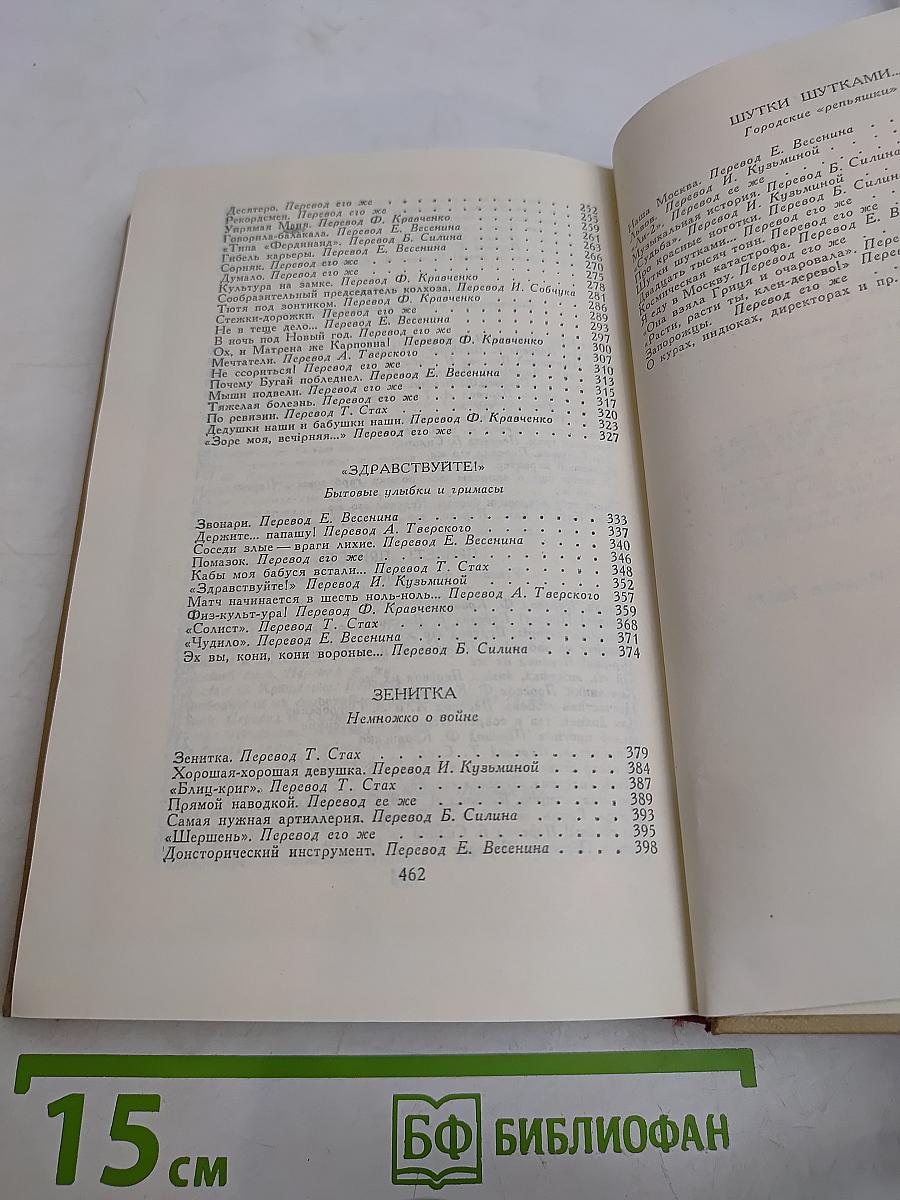 Десятеро. Перевод его же . . . . . . . . . . 252
Рекордсмен. Перевод его же . . . . . . . . . 255
Упрямая Маня. Перевод Ф. Кравченко . . . . . . 259
Говорила-балакала. Перевод Е. Весенина . . . . . 261
«Типа «Фердинанд». Перевод Б. Силина . . . . . 263
Гибель карьеры. Перевод Е. Весенина . . . . . . 266
Сорняк. Перевод его же . . . . . . . . . . 270
Думало. Перевод его же . . . . . . . . . . 275
Культура на замке. Перевод Ф. Кравченко . . . . . 278
Сообразительный председатель колхоза. Перевод И. Собчука 281
Тютя под зонтиком. Перевод Ф. Кравченко . . . . . 286
Стежки-дорожки. Перевод его же . . . . . . . 289
Не в теще дело... Перевод Е. Весенина . . . . . . 293
В ночь под Новый год. Перевод его же . . . . . . 297
Ох, и Матрена же Карповна! Перевод Ф. Кравченко . . 300
Мечтатели. Перевод А. Тверского . . . . . . . 307
Не ссориться! Перевод его же . . . . . . . . 310
Почему Бугай побледнел. Перевод Е. Весенина . . . . 313
Мыши подвели. Перевод его же . . . . . . . . 315
Тяжелая болезнь. Перевод его же . . . . . . . 317
По ревизии. Перевод Т. Стах . . . . . . . . 320
Дедушки наши и бабушки наши. Перевод Ф. Кравченко . . 323
«Зоре моя, вечірняя...» Перевод его же . . . . . . 327
«ЗДРАВСТВУЙТЕ!»
Бытовые улыбки и гримасы
Звонари. Перевод Е. Весенина . . . . . . . . . 333
Держите... папашу! Перевод А. Тверского . . . . . . 337
Соседи злые — враги лихие. Перевод Е. Весенина . . . . 340
Помазок. Перевод его же . . . . . . . . . . 346
Кабы моя бабуся встали... Перевод Т. Стах . . . . . 348
«Здравствуйте!» Перевод И. Кузьминой . . . . . . 352
Матч начинается в шесть ноль-ноль... Перевод А. Тверского 357
Физ-культ-ура! Перевод Ф. Кравченко . . . . . . . 359
«Солист». Перевод Т. Стах . . . . . . . . . 368
«Чудило». Перевод Е. Весенина . . . . . . . . 371
Эх вы, кони, кони вороные... Перевод Б. Силина . . . . 374
ЗЕНИТКА
Немножко о войне
Зенитка. Перевод Т. Стах . . . . . . . . . . 379
Хорошая-хорошая девушка. Перевод И. Кузьминой . . . . 384
«Блиц-криг». Перевод Т. Стах . . . . . . . . . 387
Прямой наводкой. Перевод ее же . . . . . . . . 389
Самая нужная артиллерия. Перевод Б. Силина . . . . . 393
«Шершень». Перевод его же . . . . . . . . . 395
Доисторический инструмент. Перевод Е. Весенина . . . . 398
462
ШУТКИ ШУТКАМИ...
Городские «репьяшки»
Наша Москва. Перевод Е. Весенина . .
Львы. Перевод И. Кузьминой . .
Перевод ее же . . .
Музыкальная история. Перевод Б. Силина
«Судьба». Перевод И. Кузьминой . .
Про красные ноготки. Перевод Б. Силина
Шутки шутками... Перевод его же . .
Двадцать тысяч тонн. Перевод его же
Космическая катастрофа. Перевод Е. В
Я еду в Москву. Перевод его же . .
«Она взяла Гриця и очаровала». Пере
«Расти, расти ты, клен-дерево!» Перев
Запорожцы. Перевод его же . .
О курах, индюках, директорах и пр.
15 см
БФ БИБЛИОФАН